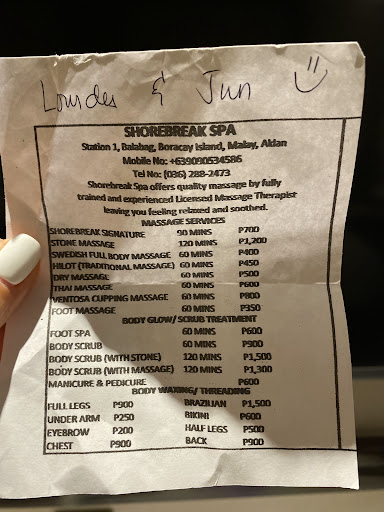 Lourdes & Jun
SHOREBREAK SPA
Station 1, Balabag, Boracay Island, Malay, Aklan
Mobile No: +639090534586
Tel No: (036) 288-2473
Shorebreak Spa offers quality massage by fully
trained and experienced Licensed Massage Therapist
leaving you feeling relaxed and soothed.
MASSAGE SERVICES
SHOREBREAK SIGNATURE 90 MINS P700
STONE MASSAGE 120 MINS P1,200
SWEDISH FULL BODY MASSAGE 60 MINS P400
HILOT (TRADITIONAL MASSAGE) 60 MINS P450
DRY MASSAGE 60 MINS P500
THAI MASSAGE 60 MINS P600
VENTOSA CUPPING MASSAGE 60 MINS P800
FOOT MASSAGE 60 MINS P350
BODY GLOW/ SCRUB TREATMENT
FOOT SPA 60 MINS P600
BODY SCRUB 60 MINS P900
BODY SCRUB (WITH STONE) 120 MINS P1,500
BODY SCRUB (WITH MASSAGE) 120 MINS P1,300
MANICURE & PEDICURE P600
BODY WAXING/ THREADING
FULL LEGS P900 BRAZILIAN P1,500
UNDER ARM P250 BIKINI P600
EYEBROW P200 HALF LEGS P500
CHEST P900 BACK P900